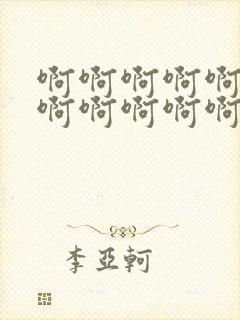 啊啊啊啊啊
啊啊啊啊啊
李亚轲